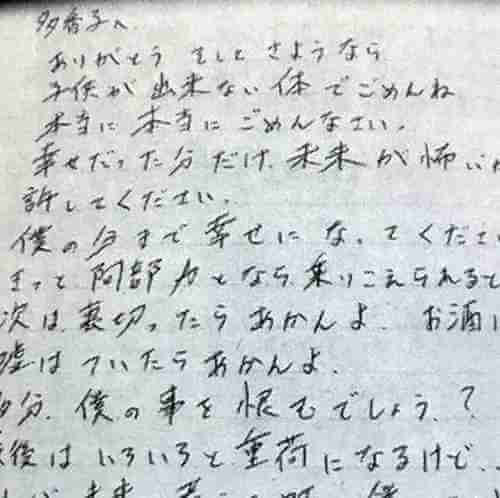 多香子へ
ありがとう そして さようなら
子供が 出来ない 体 で ごめんね
本当に 本当に ごめんなさい。
幸せだった分だけ、未来が怖い
許してください。
僕の分まで幸せになってくださ
きっと 阿部力となら乗りこえられると
次は、裏切ったらあかんよ お酒
嘘はついたらあかんよ。
多分、僕の事を恨むでしょう?
後はいろいろと重荷になるけど
未来